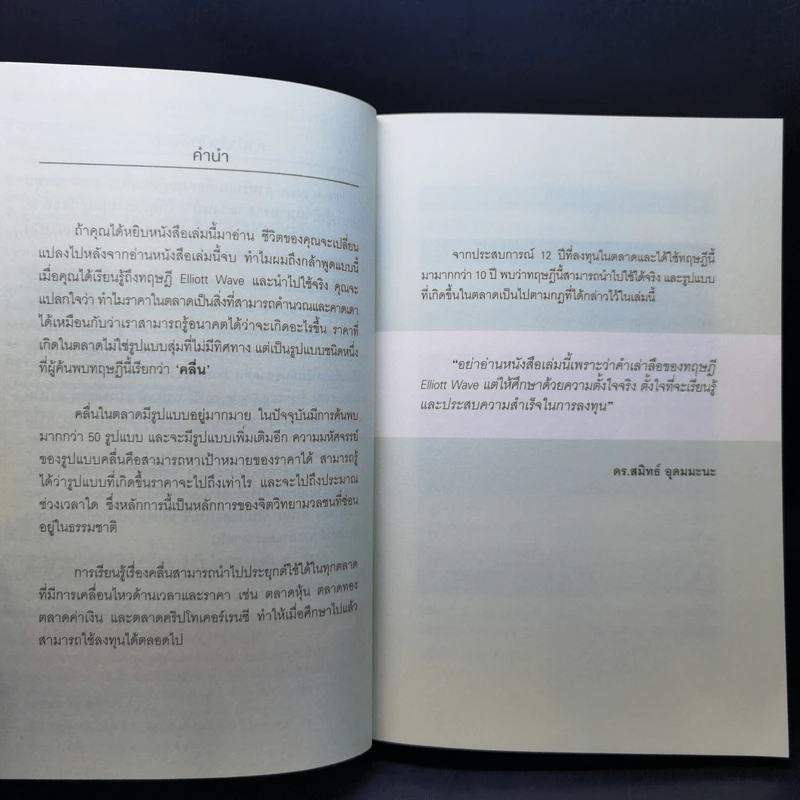 คำนำ
ถ้าคุณได้หยิบหนังสือเล่มนี้มาอ่าน ชีวิตของคุณจะเปลี่ยน
แปลงไปหลังจากอ่านหนังสือเล่มนี้จบ ทำไมผมถึงกล้าพูดแบบนี้
เมื่อคุณได้เรียนรู้ถึงทฤษฎี Elliott Wave และนำไปใช้จริง คุณจะ
แปลกใจว่า ทำไมราคาในตลาดเป็นสิ่งที่สามารถคำนวณและคาดเดา
ได้เหมือนกับว่าเราสามารถรู้อนาคตได้ว่าจะเกิดอะไรขึ้น ราคาที่
เกิดในตลาดไม่ใช่รูปแบบสุ่มที่ไม่มีทิศทาง แต่เป็นรูปแบบชนิดหนึ่ง
ที่ผู้ค้นพบทฤษฎีนี้เรียกว่า ‘คลื่น’
คลื่นในตลาดมีรูปแบบอยู่มากมาย ในปัจจุบันมีการค้นพบ
มากกว่า 50 รูปแบบ และจะมีรูปแบบเพิ่มเติมอีก ความมหัศจรรย์
ของรูปแบบคลื่นคือสามารถหาเป้าหมายของราคาได้ สามารถรู้
ได้ว่ารูปแบบที่เกิดขึ้นราคาจะไปถึงเท่าไร และจะไปถึงประมาณ
ช่วงเวลาใด ซึ่งหลักการนี้เป็นหลักการของจิตวิทยามวลชนที่ซ่อน
อยู่ในธรรมชาติ
การเรียนรู้เรื่องคลื่นสามารถนำไปประยุกต์ใช้ได้ในทุกตลาด
ที่มีการเคลื่อนไหวด้านเวลาและราคา เช่น ตลาดหุ้น ตลาดทอง
ตลาดค่าเงิน และตลาดคริปโทเคอร์เรนซี ทำให้เมื่อศึกษาไปแล้ว
สามารถใช้ลงทุนได้ตลอดไป
จากประสบการณ์ 12 ปีที่ลงทุนในตลาดและได้ใช้ทฤษฎีนี้
มามากกว่า 10 ปี พบว่าทฤษฎีนี้สามารถนำไปใช้ได้จริง และรูปแบบ
ที่เกิดขึ้นในตลาดเป็นไปตามกฎที่ได้กล่าวไว้ในเล่มนี้
“อย่าอ่านหนังสือเล่มนี้เพราะว่าคำเล่าลือของทฤษฎี
Elliott Wave แต่ให้ศึกษาด้วยความตั้งใจจริง ตั้งใจที่จะเรียนรู้
และประสบความสำเร็จในการลงทุน”
ดร.สมิทธ์ อุดมมะนะ